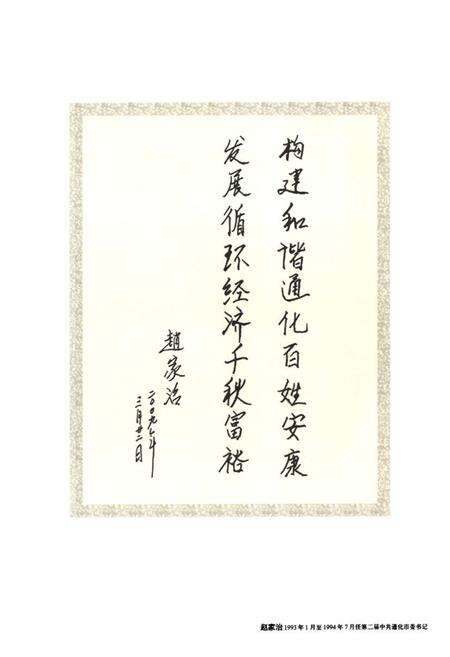 构建和谐通化百姓安康
发展循环经济千秋富裕
赵家治
二〇〇九年
三月廿二日
赵家治 1993年1月至1994年7月任第二届中共通化市委书记